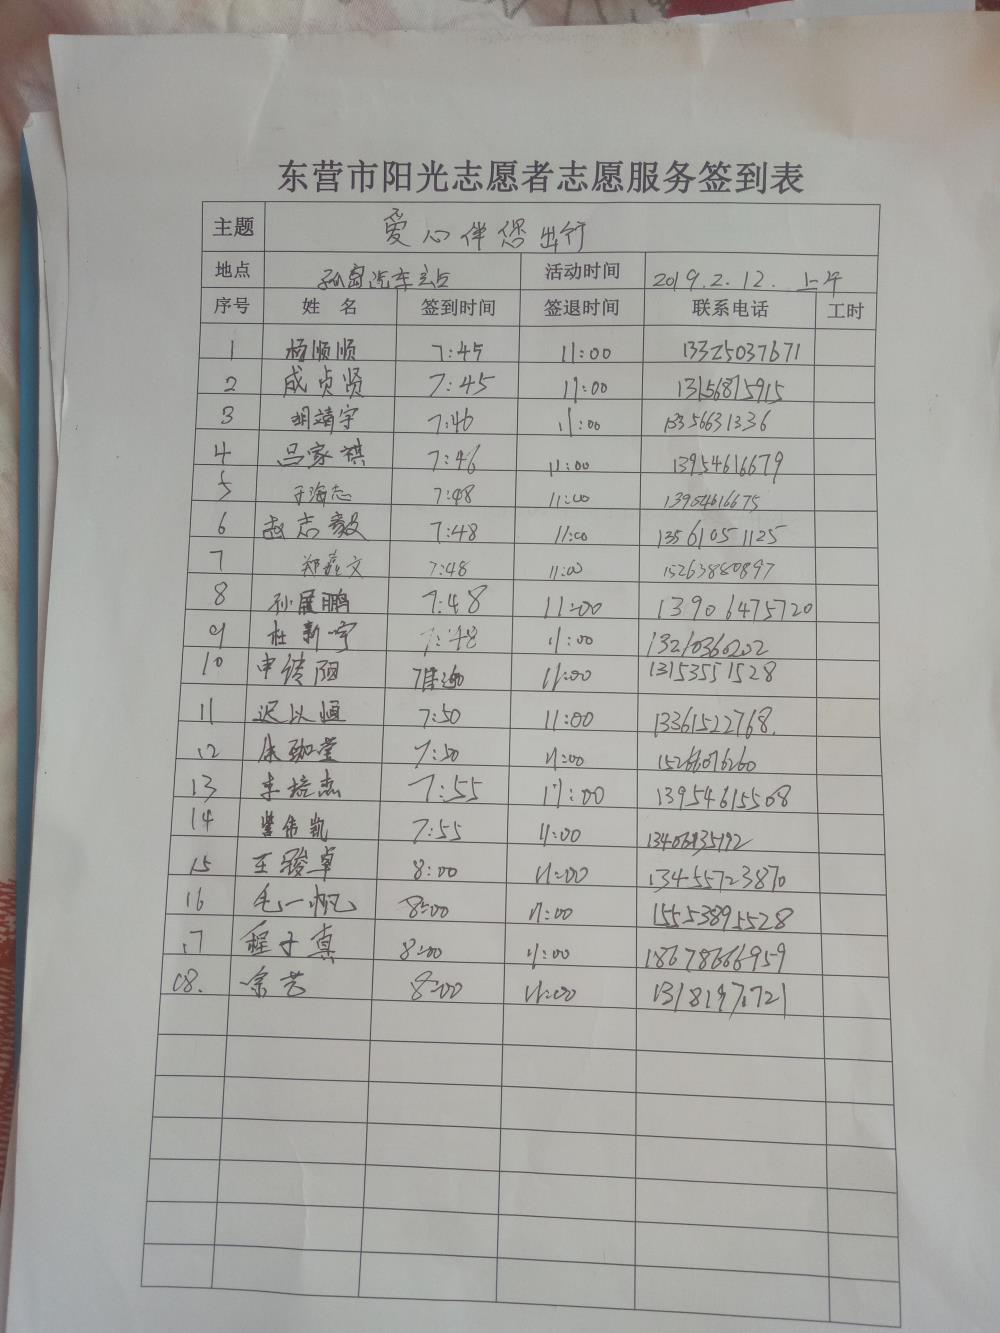 东营市阳光志愿者志愿服务签到表
主题 爱心伴您出行
地点 孤岛汽车站 活动时间 2019.2.12. 上午
序号 姓名 签到时间 签退时间 联系电话 工时
1 杨顺顺 7:45 11:00 13325037671
2 成贞贤 7:45 11:00 13156875915
3 胡靖宇 7:46 11:00 13356631336
4 吕家祺 7:46 11:00 13954616679
5 于海志 7:48 11:00 13904616675
6 赵志毅 7:48 11:00 13561051125
7 郑嘉文 7:48 11:00 15263880897
8 孙展鹏 7:48 11:00 13906475720
9 杜新宇 7:48 11:00 13210360202
10 申 阳 11:00 13153551528
11 迟以恒 7:50 11:00 13361522768.
12 7:50 11:00 15266076260
13 李培杰 7:55 11:00 13954615508
14 伟凯 7:55 11:00
15 王骏卓 8:00 11:00 13455723870
16 毛一帆 8:00 11:00 15553895528
17 程子真 8:00 11:00 18678666959
18. 徐艺 8:00 11:00